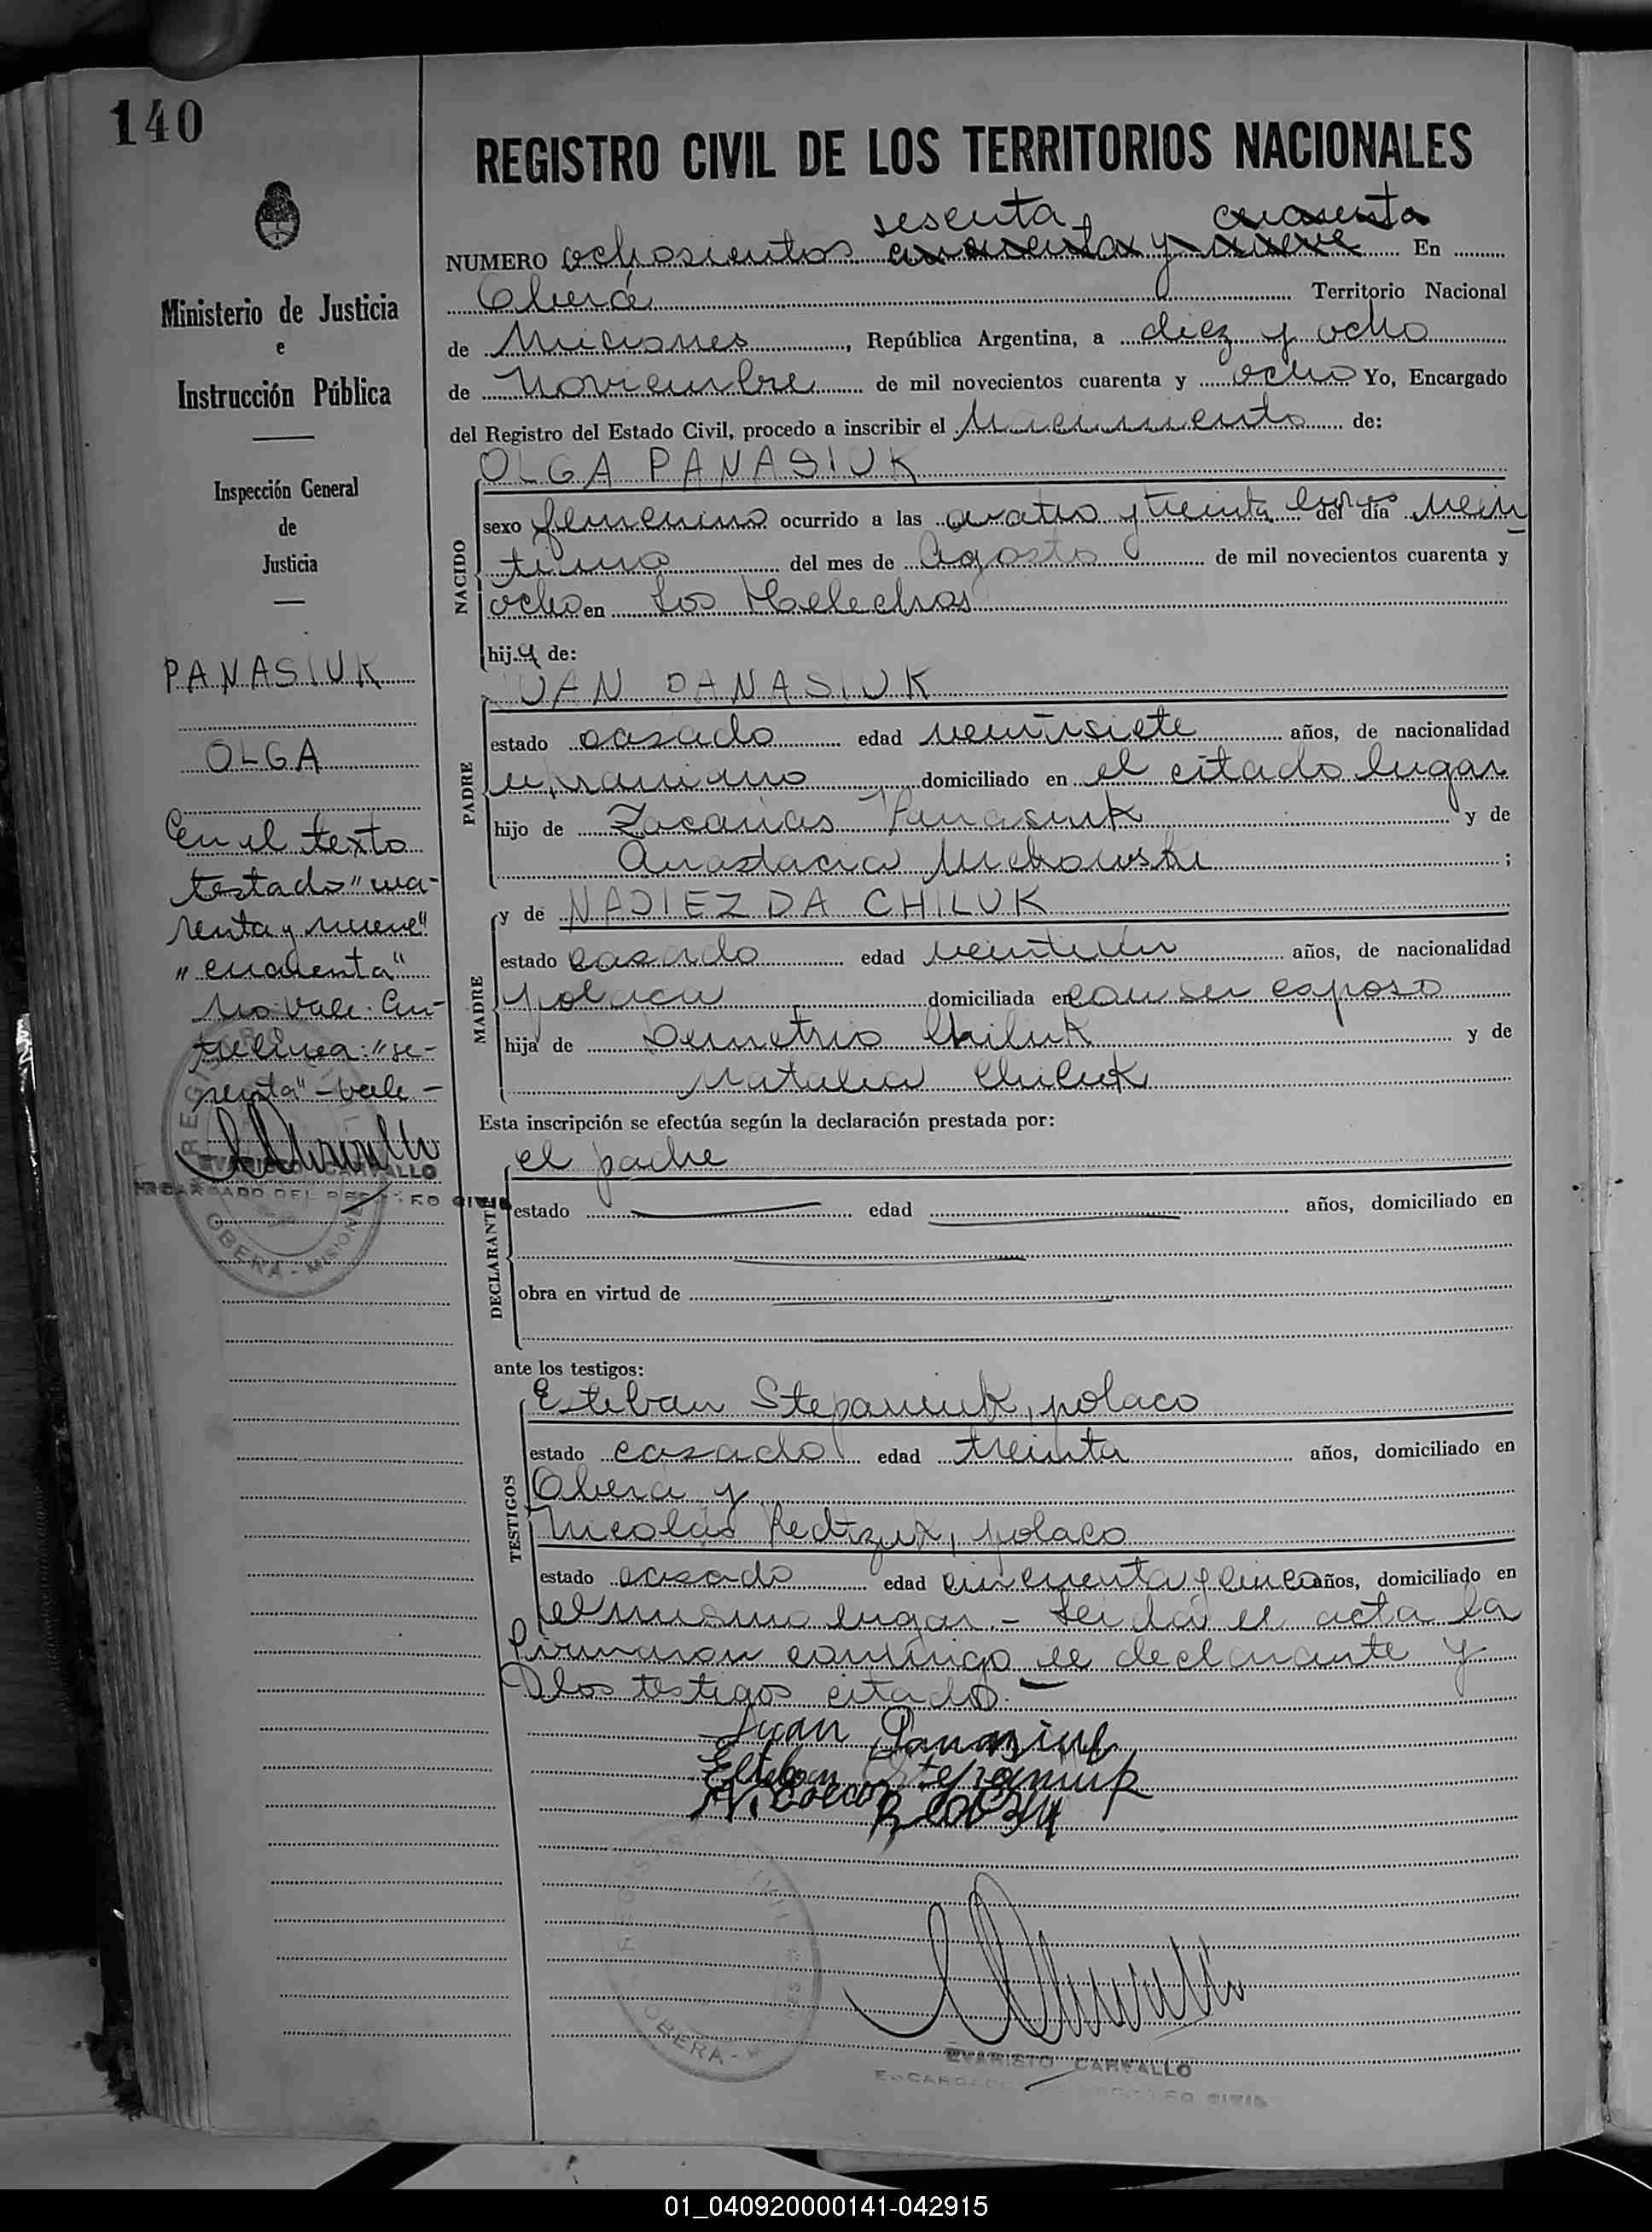 140
REGISTRO CIVIL DE LOS TERRITORIOS NACIONALES
sesenta cuarenta
NUMERO ochosientos cuarenta y nueve En
Oberá Territorio Nacional
de Misiones, República Argentina, a diez y ocho
de Noviembre de mil novecientos cuarenta y ocho Yo, Encargado
del Registro del Estado Civil, procedo a inscribir el Nacimiento de:
OLGA PANASIUK
NACIDO
sexo femenino ocurrido a las cuatro y treinta del día vein
tiuno del mes de Agosto de mil novecientos cuarenta y
ocho en Los Helechos
hija de:
JUAN PANASIUK
PADRE
estado casado edad veintisiete años, de nacionalidad
ukraniano domiciliado en el citado lugar
hijo de Zacarias Panasiuk y de
Anastacia ;
MADRE
y de NADIEZDA CHILUK
estado casada edad veintiún años, de nacionalidad
polaca domiciliada en con su esposo
hija de Demetrio Chiluk y de
Natalia Chiluk
Esta inscripción se efectúa según la declaración prestada por:
el padre
DECLARANTE
estado edad años, domiciliado en
obra en virtud de
ante los testigos:
TESTIGOS
Esteban Stepaniuk, polaco
estado casado edad treinta años, domiciliado en
Oberá y
Nicolás polaco
estado casado edad cincuenta y cinco años, domiciliado en
el mismo lugar.- Leída el acta la
firmaron conmigo el declarante y
los testigos citados.-
Juan Panasiuk
Esteban Stepaniuk
EVARISTO CARVALLO
ENCARGADO DEL REGISTRO CIVIL
OBERA -
Ministerio de Justicia
e
Instrucción Pública
Inspección General
de
Justicia
PANASIUK
OLGA
En el texto
testado "cua-
renta y nueve"
"cuarenta"
No vale. En-
trelínea: "se-
senta" - vale -
EVARISTO CARVALLO
ENCARGADO DEL REGISTRO CIVIL
OBERA - MISIONES
01_040920000141-042915